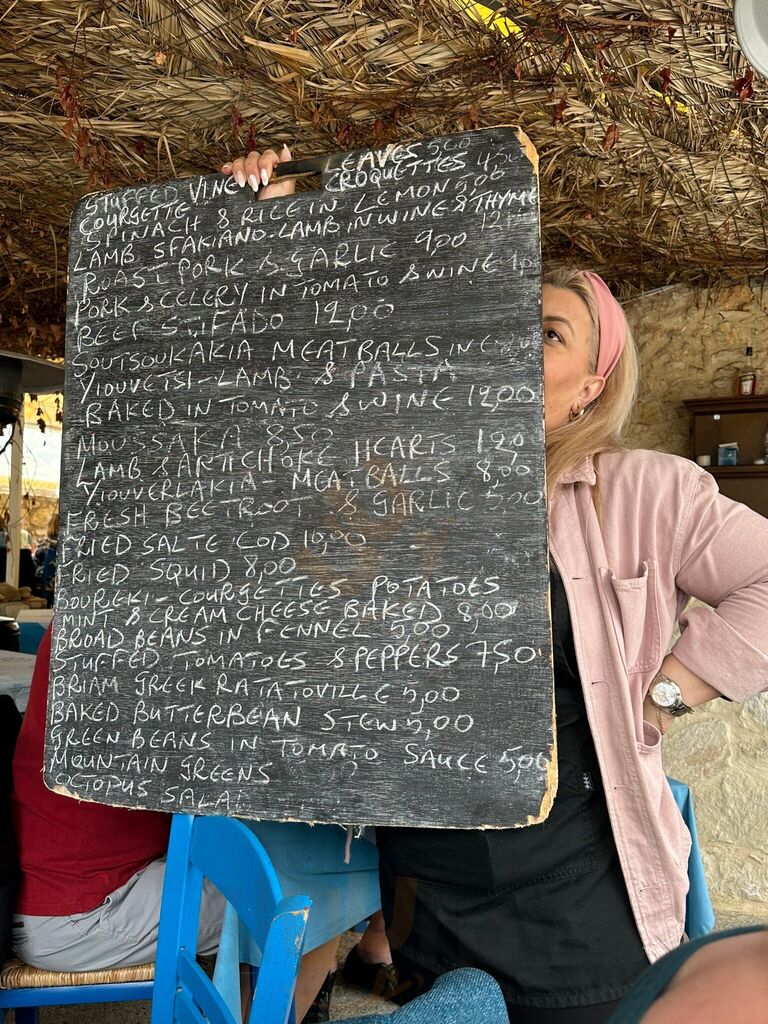 STUFFED VINE LEAVES 500
COURGETTE CROQUETTES 450
SPINACH & RICE IN LEMON 5,00
LAMB SFAKIANO-LAMB IN WINE & THYME
12
ROAST PORK & GARLIC 9,00
PORK & CELERY IN TOMATO & WINE
BEEF STIFADO 12,00
SOUTSOUKAKIA MEATBALLS IN
YIOUVETSI-LAMB & PASTA
BAKED IN TOMATO & WINE 12,00
MOUSSAKA 8,50
LAMB & ARTICHOKE HEARTS 12,0
YIOUVERLAKIA-MEATBALLS 8,00
FRESH BEETROOT & GARLIC 5,00
FRIED SALTE COD 10,00
FRIED SQUID 8,00
BOUREKI-COURGETTES POTATOES
MINT & CREAM CHEESE BAKED 8,00
BROAD BEANS IN FENNEL 5,00
STUFFED TOMATOES & PEPPERS 7,50
BRIAM GREEK RATATOVILLE 5,00
BAKED BUTTERBEAN STEW 5,00
GREEN BEANS IN TOMATO SAUCE 5,00
MOUNTAIN GREENS
OCTOPUS SALA